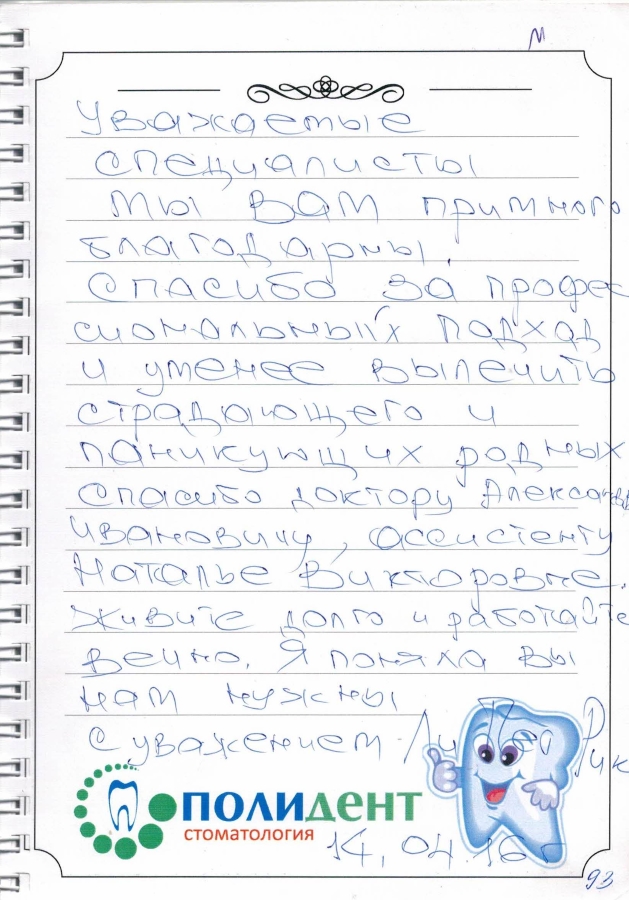 м
Уважаемые
специалисты
мы вам примного
благодарны.
Спасибо за профес
сиональныйх подход
и уменее вылечить
страдающего и
паникующих родных
Спасибо доктору Александру
Ивановичу, ассистенту
Наталье Викторовне.
Живите долго и работайте
вечно. Я поняла вы
нам нужны
с уважением
ПОЛИДЕНТ
СТОМАТОЛОГИЯ
14.04.16 г
93